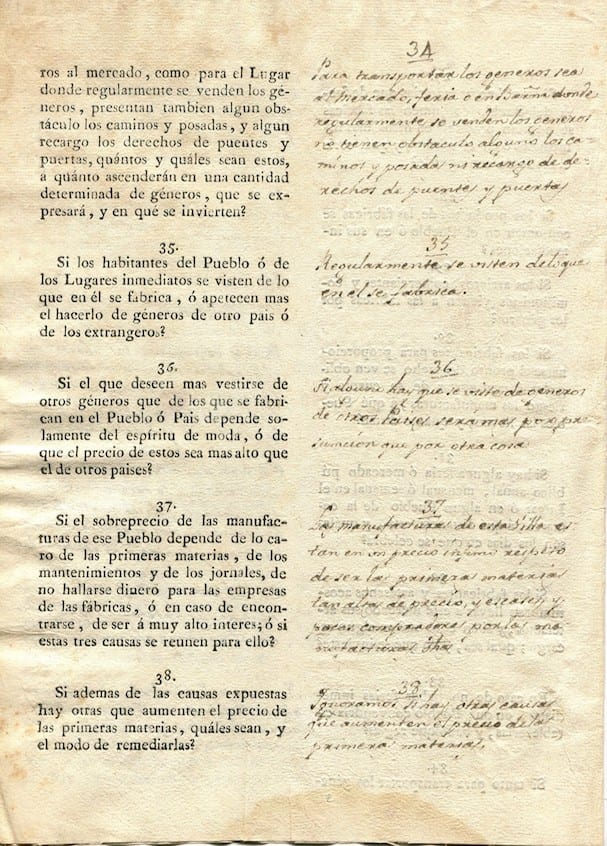 ros al mercado, como para el Lugar
donde regularmente se venden los gé-
neros, presentan tambien algun obs-
táculo los caminos y posadas, y algun
recargo los derechos de puentes y
puertas, quántos y quáles sean estos,
á quánto ascenderán en una cantidad
determinada de géneros, que se ex-
presará, y en qué se invierten?
35.
Si los habitantes del Pueblo ó de
los Lugares inmediatos se visten de lo
que en él se fabrica, ó apetecen mas
el hacerlo de géneros de otro pais ó
de los extrangeros?
36.
Si el que deseen mas vestirse de
otros géneros que de los que se fabri-
can en el Pueblo ó Pais depende so-
lamente del espíritu de moda, ó de
que el precio de estos sea mas alto que
el de otros paises?
37.
Si el sobreprecio de las manufac-
turas de ese Pueblo depende de lo ca-
ro de las primeras materias, de los
mantenimientos y de los jornales, de
no hallarse dinero para las empresas
de las fábricas, ó en caso de encon-
trarse, de ser á muy alto interes; ó si
estas tres causas se reunen para ello?
38.
Si ademas de las causas expuestas
hay otras que aumenten el precio de
las primeras materias, quáles sean, y
el modo de remediarlas?
34
Para transportar los generos sea
al mercado, feria o donde
regularmente se venden los generos
no tienen obstaculo alguno los ca-
minos y posadas ni recargo de de-
rechos de puentes y puertas
35
Regularmente se visten de lo que
en el se fabrica.
36
Si alguno hay que se viste de generos
de otros Paises sera mas por pre
suncion que por otra cosa
37
Las manufacturas de esta Villa es-
tan en un precio infimo respeto
de ser las primeras materias
tan altas de precio, y escases y
pocos compradores por las ma
nufacturas
38
Ignoramos si hay otras causas
que aumenten el precio de las
primeras materias.